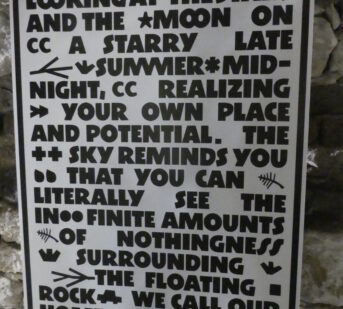 LOOKING AT THE
AND THE ★MOON ON
CC A STARRY LATE
SUMMER*MID-
NIGHT, CC REALIZING
» YOUR OWN PLACE
AND POTENTIAL. THE
++ SKY REMINDS YOU
THAT YOU CAN
LITERALLY SEE THE
IN●●FINITE AMOUNTS
OF NOTHINGNESS
SURROUNDING
THE FLOATING ■
ROCK WE CALL OUR